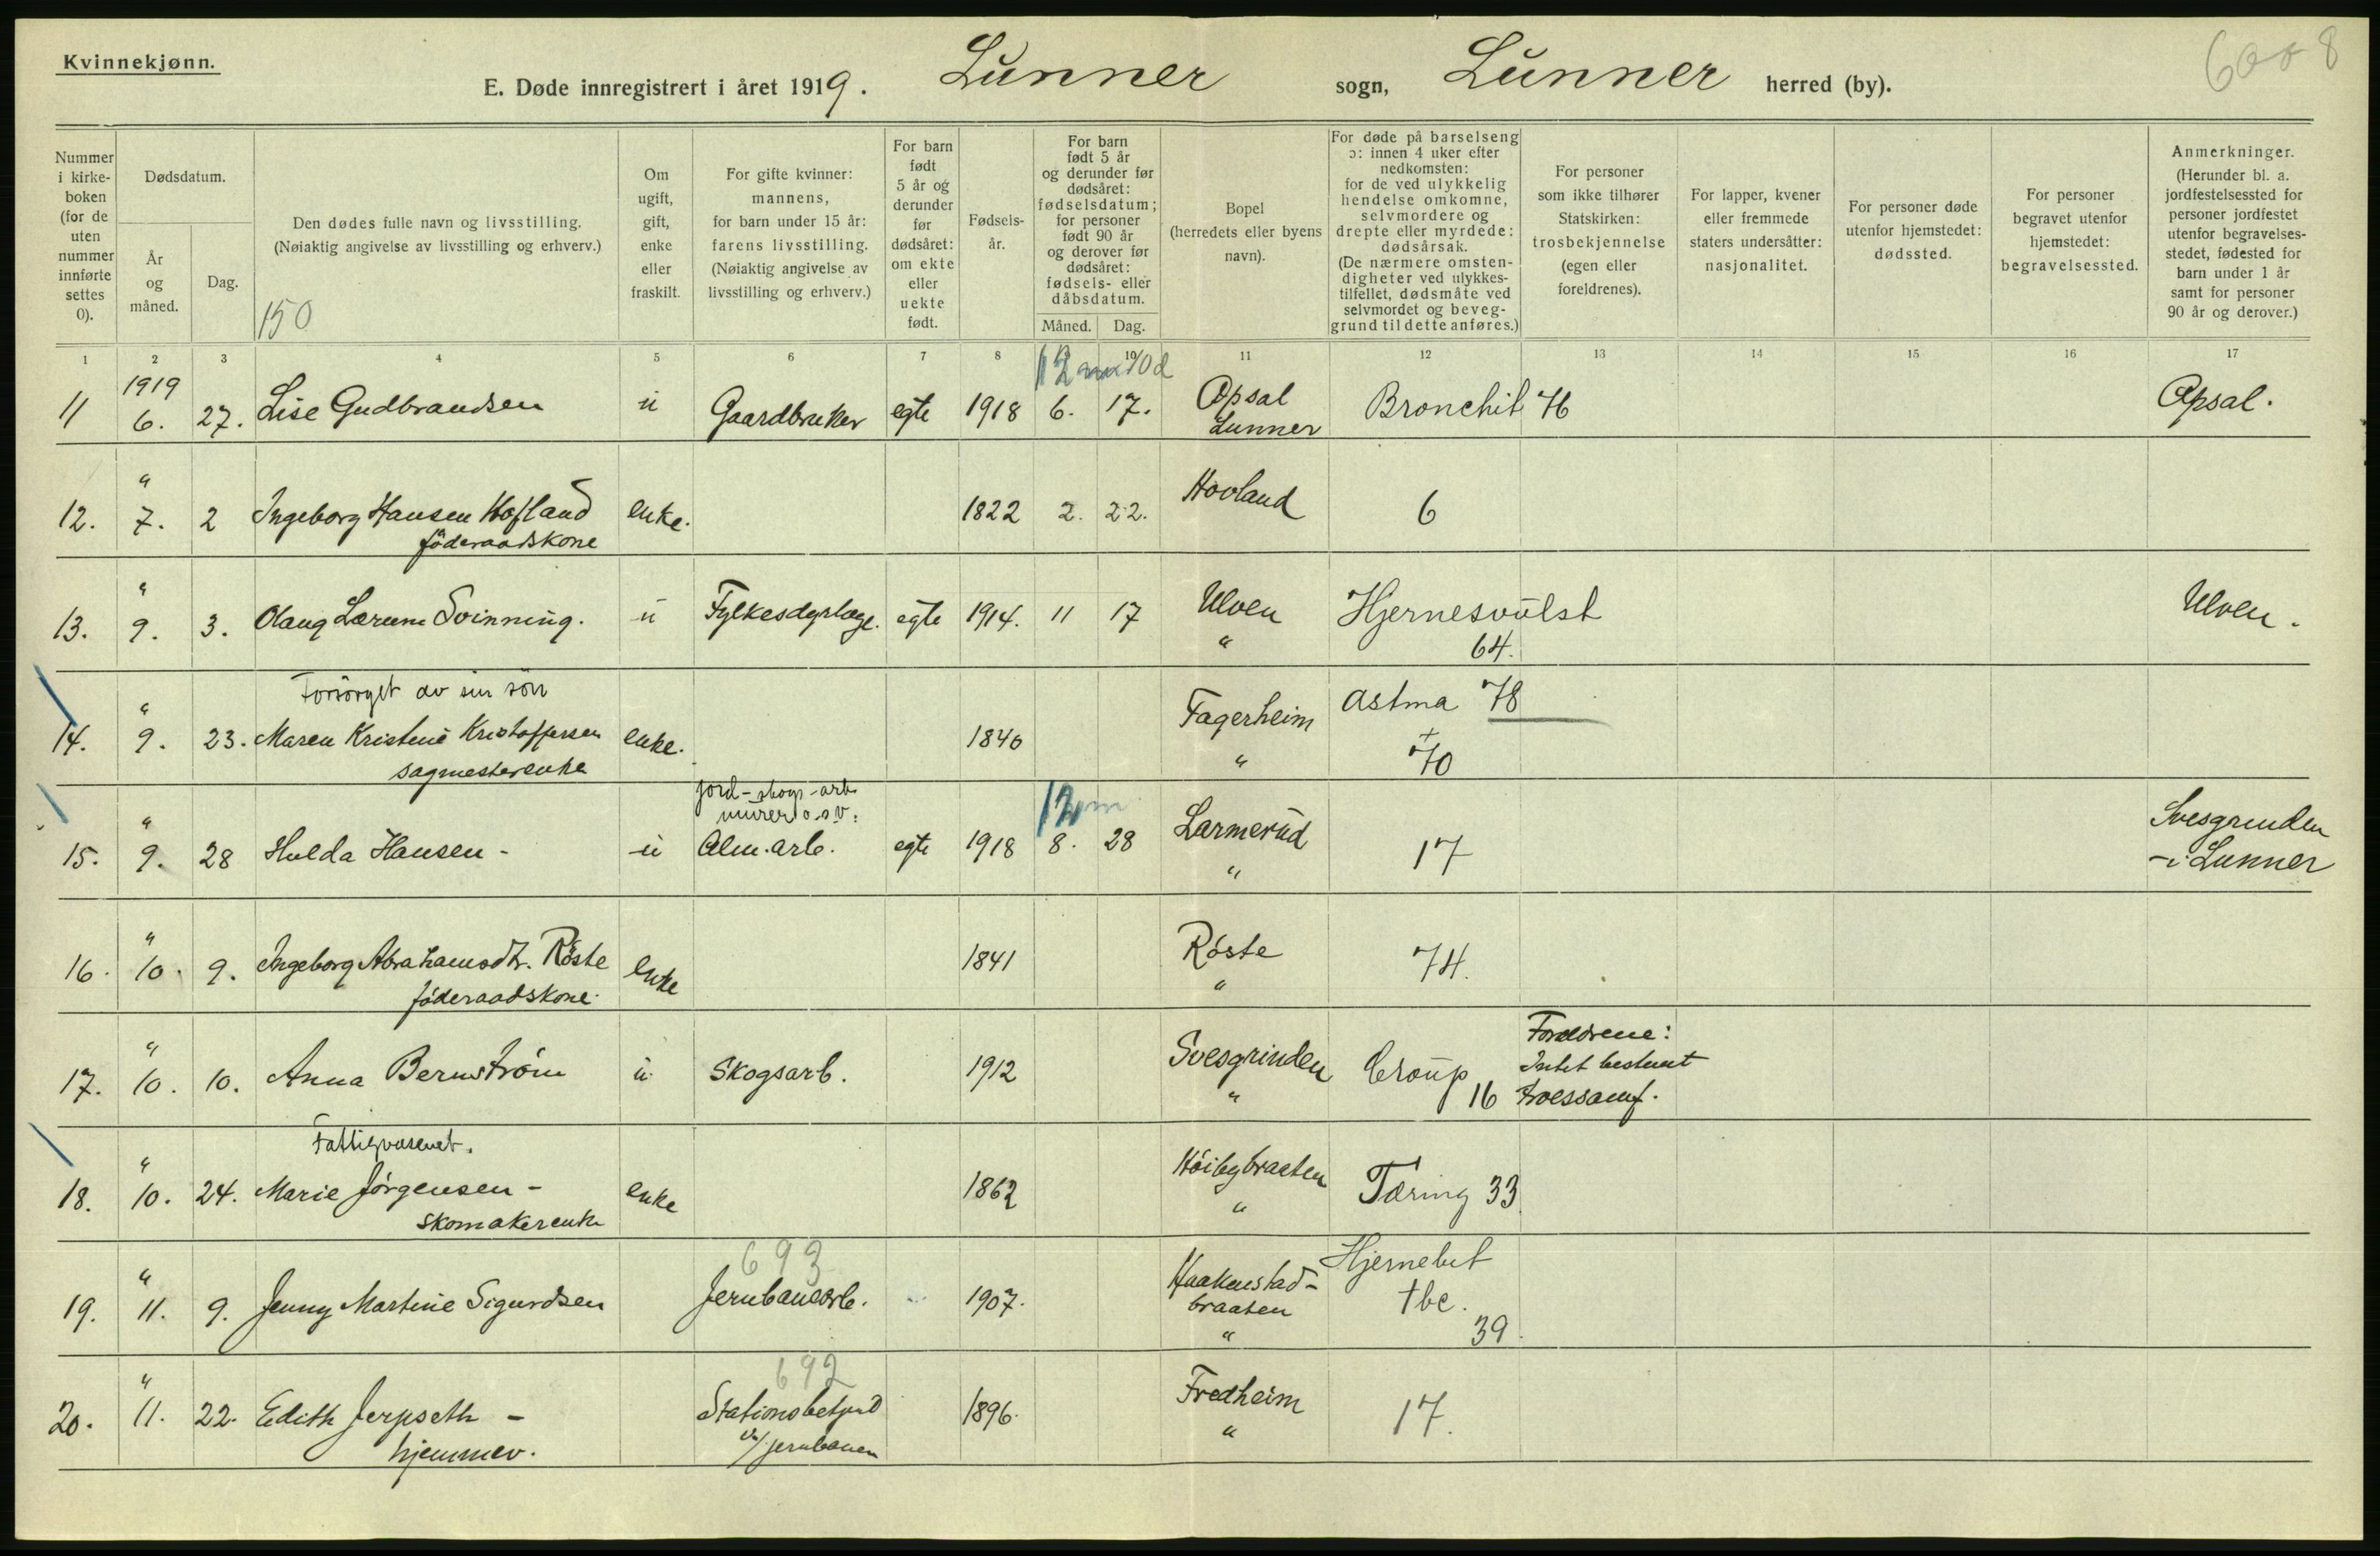 Kvinnekjønn.
E. Døde innregistrert i året 1919. Lunner sogn, Lunner herred (by).
6008
Nummer i kirkeboken (for de uten nummer innførte settes 0).
Dødsdatum.
År og måned.
Dag.
Den dødes fulle navn og livsstilling.
(Nøiaktig angivelse av livsstilling og erhverv.)
150
Om ugift, gift, enke eller fraskilt.
For gifte kvinner: mannens, for barn under 15 år: farens livsstilling. (Nøiaktig angivelse av livsstilling og erhverv.)
For barn født 5 år og derunder før dødsåret: om ekte eller uekte født.
Fødselsår.
For barn født 5 år og derunder før dødsåret: fødselsdatum; for personer født 90 år og derover før dødsåret: fødsels- eller dåbsdatum.
Måned. Dag.
Bopel (herredets eller byens navn).
For døde på barselseng ɔ: innen 4 uker efter nedkomsten: for de ved ulykkelig hendelse omkomne, selvmordere og drepte eller myrdede: dødsårsak. (De nærmere omstendigheter ved ulykkestilfellet, dødsmåte ved selvmordet og beveggrund til dette anføres.)
For personer som ikke tilhører Statskirken: trosbekjennelse (egen eller foreldrenes).
For lapper, kvener eller fremmede staters undersåtter: nasjonalitet.
For personer døde utenfor hjemstedet: dødssted.
For personer begravet utenfor hjemstedet: begravelsessted.
Anmerkninger. (Herunder bl. a. jordfestelsessted for personer jordfestet utenfor begravelsesstedet, fødested for barn under 1 år samt for personer 90 år og derover.)
1 2 3 4 5 6 7 8 10 11 12 13 14 15 16 17
12 10 d
1919
11 6. 27. Lise Gudbrandsen u Gaardbruker egte 1918 6. 17. Opsal Bronchit 76 Opsal.
Lunner
"
12. 7. 2 Ingeborg Hansen Hofland enke. 1822 2. 22. Hovland 6
föderaadskone
"
13. 9. 3. Olaug Lærum Svinning. u Fylkesdyrlæge. egte 1914. 11 17 Ulven Hjernesvulst Ulven.
" 64.
Forsörget av sin sön
"
14. 9. 23. Maren Kristine Kristoffersen enke. 1840 Fagerheim Astma 78
sagmesterenke " + 70
jord-skogs-arb.
murer o.s.v.
12 m
"
15. 9. 28 Hulda Hansen - u Alm. arb. egte 1918 8. 28 Larmerud 17 Svesgrinden
" -i Lunner
"
16. 10. 9. Ingeborg Abrahamsdtr. Röste enke 1841 Röste 74.
föderaadskone. "
"
17. 10. 10. Anna Bernström u. Skogsarb. 1912 Svesgrinden Croup 16 Foreldrene:
" Intet bestemt
troessamf.
Fattigvæsenet.
"
18. 10. 24. Marie Jörgensen - enke 1862 Höibybraaten Tæring 33
skomakerenke "
693
"
19. 11. 9. Jenny Martine Sigurdsen Jernbanearb. 1907. Haakenstad- Hjernebet
braaten tbc.
" 39.
692
"
20. 11. 22. Edith Jerpseth - Stationsbetjent 1896. Fredheim 17.
hjemmev. v/jernbanen "